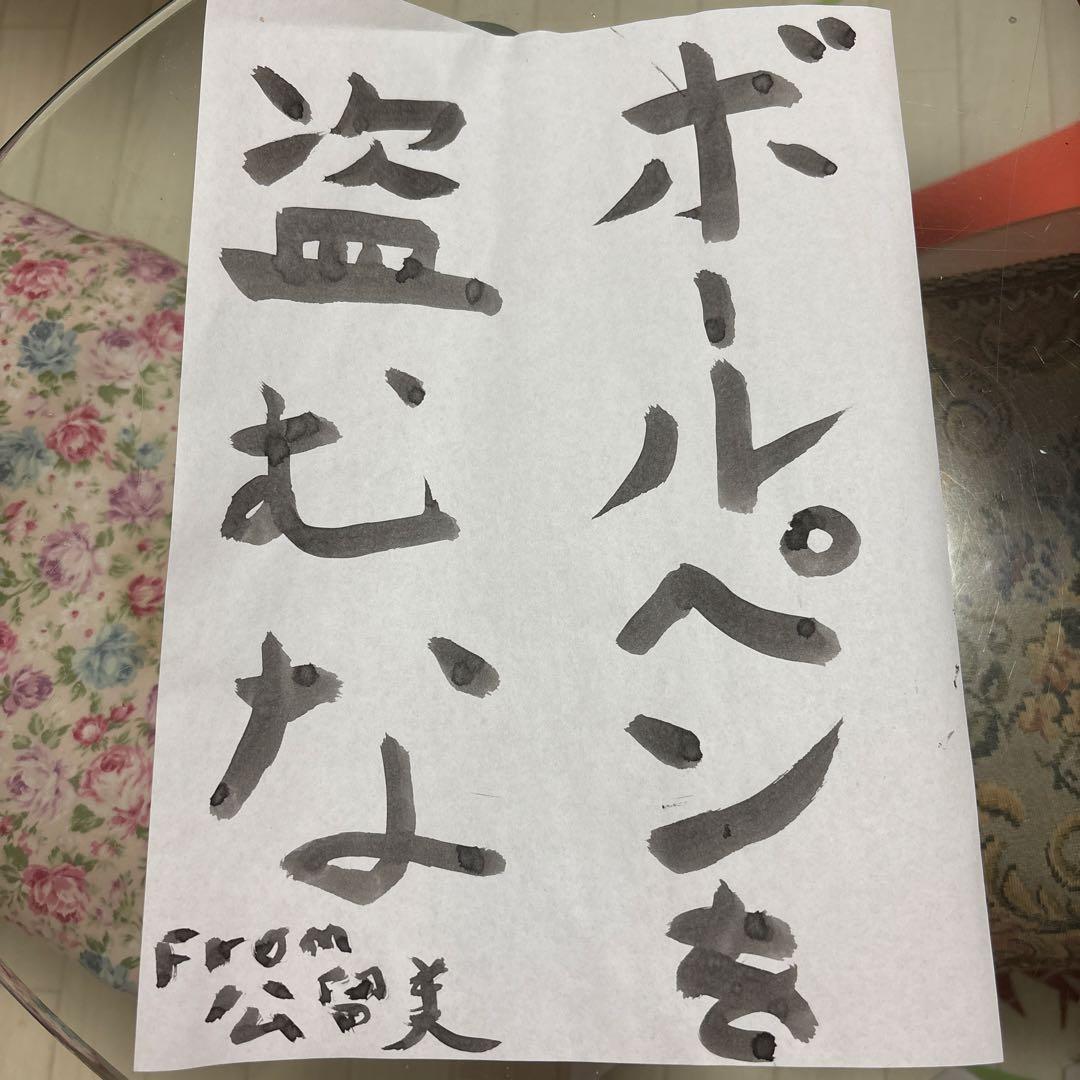 ボールペンを
盗むな
From
公留美